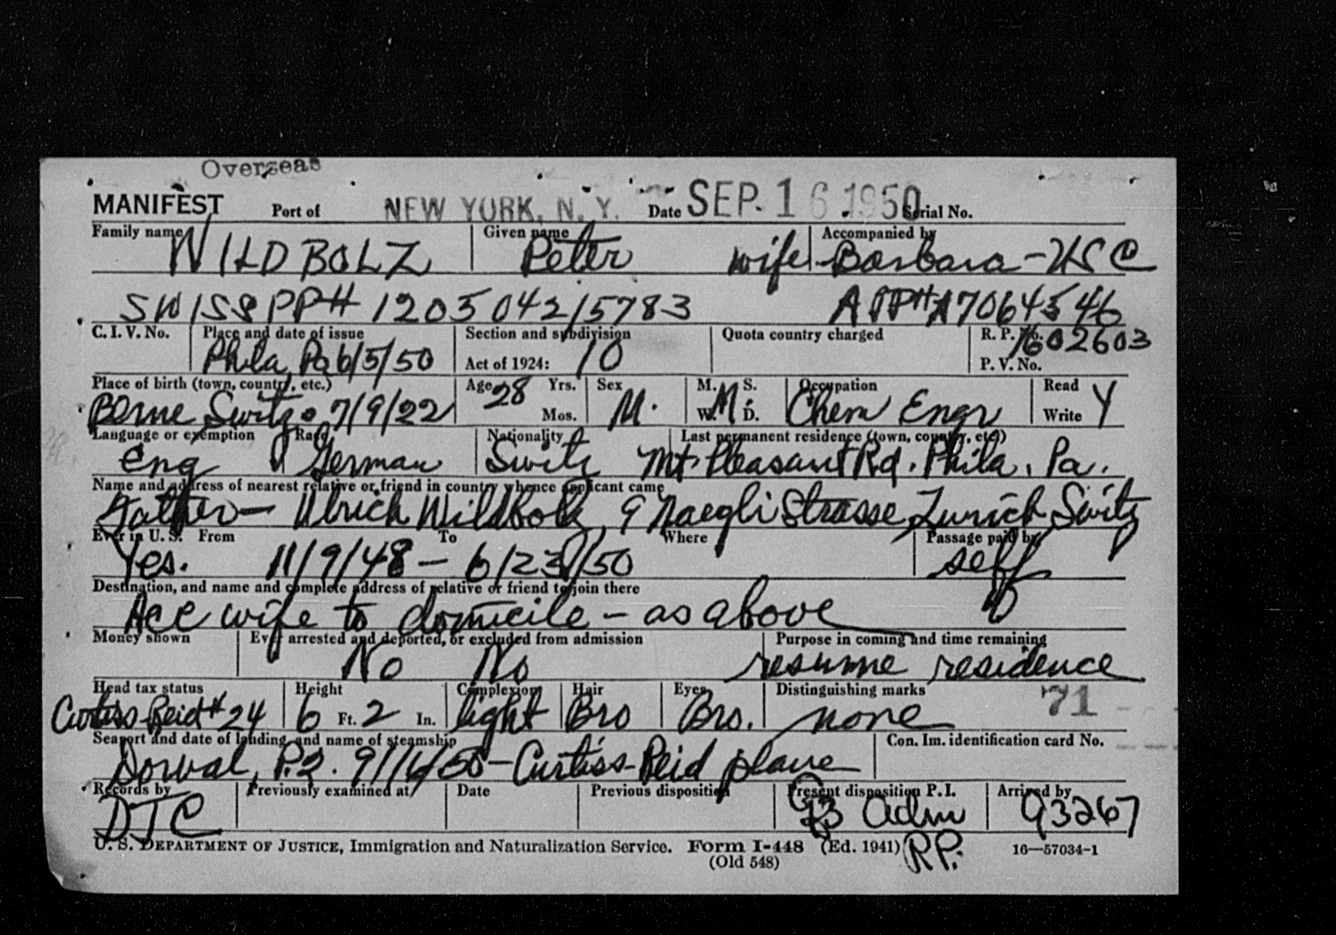 Overseas
MANIFEST Port of NEW YORK, N. Y. Date SEP. 16 1950 Serial No.
Family name Given name Accompanied by
WILDBOLZ Peter wife - Barbara - USC
SWISS PP# 1205042/5783 APP# A7064546
C. I. V. No. Place and date of issue Section and subdivision Quota country charged R. P. 1602603
Phila Pa 6/5/50 Act of 1924: 10 P. V. No.
Place of birth (town, country, etc.) Age 28 Yrs. Sex M. S. Occupation Read
Berne Switz. 7/9/22 Mos. M. W. M. D. Chem Engr Write Y
Language or exemption Race Nationality Last permanent residence (town, country, etc.)
Eng German Switz Mt. Pleasant Rd. Phila. Pa.
Name and address of nearest relative or friend in country whence applicant came
Father - Ulrich Wildbolz, 9 Naegli Strasse Zurich Switz
Ever in U. S. From To Where Passage paid by
Yes. 11/9/48 - 6/23/50 self
Destination, and name and complete address of relative or friend to join there
Acc wife to domicile - as above
Money shown Ever arrested and deported, or excluded from admission Purpose in coming and time remaining
No No resume residence
Head tax status Height Complexion Hair Eyes Distinguishing marks 71
Curtiss-Reid # 24 6 Ft. 2 In. light Bro Bro. none
Seaport and date of landing, and name of steamship Con. Im. identification card No.
Dorval, P.Q. 9/16/50 - Curtiss-Reid plane
Records by Previously examined at Date Previous disposition Present disposition P. I. Arrived by
DJC Adm 93267
U. S. DEPARTMENT OF JUSTICE, Immigration and Naturalization Service. Form I-448 (Ed. 1941) RP. 16—57034-1
(Old 548)